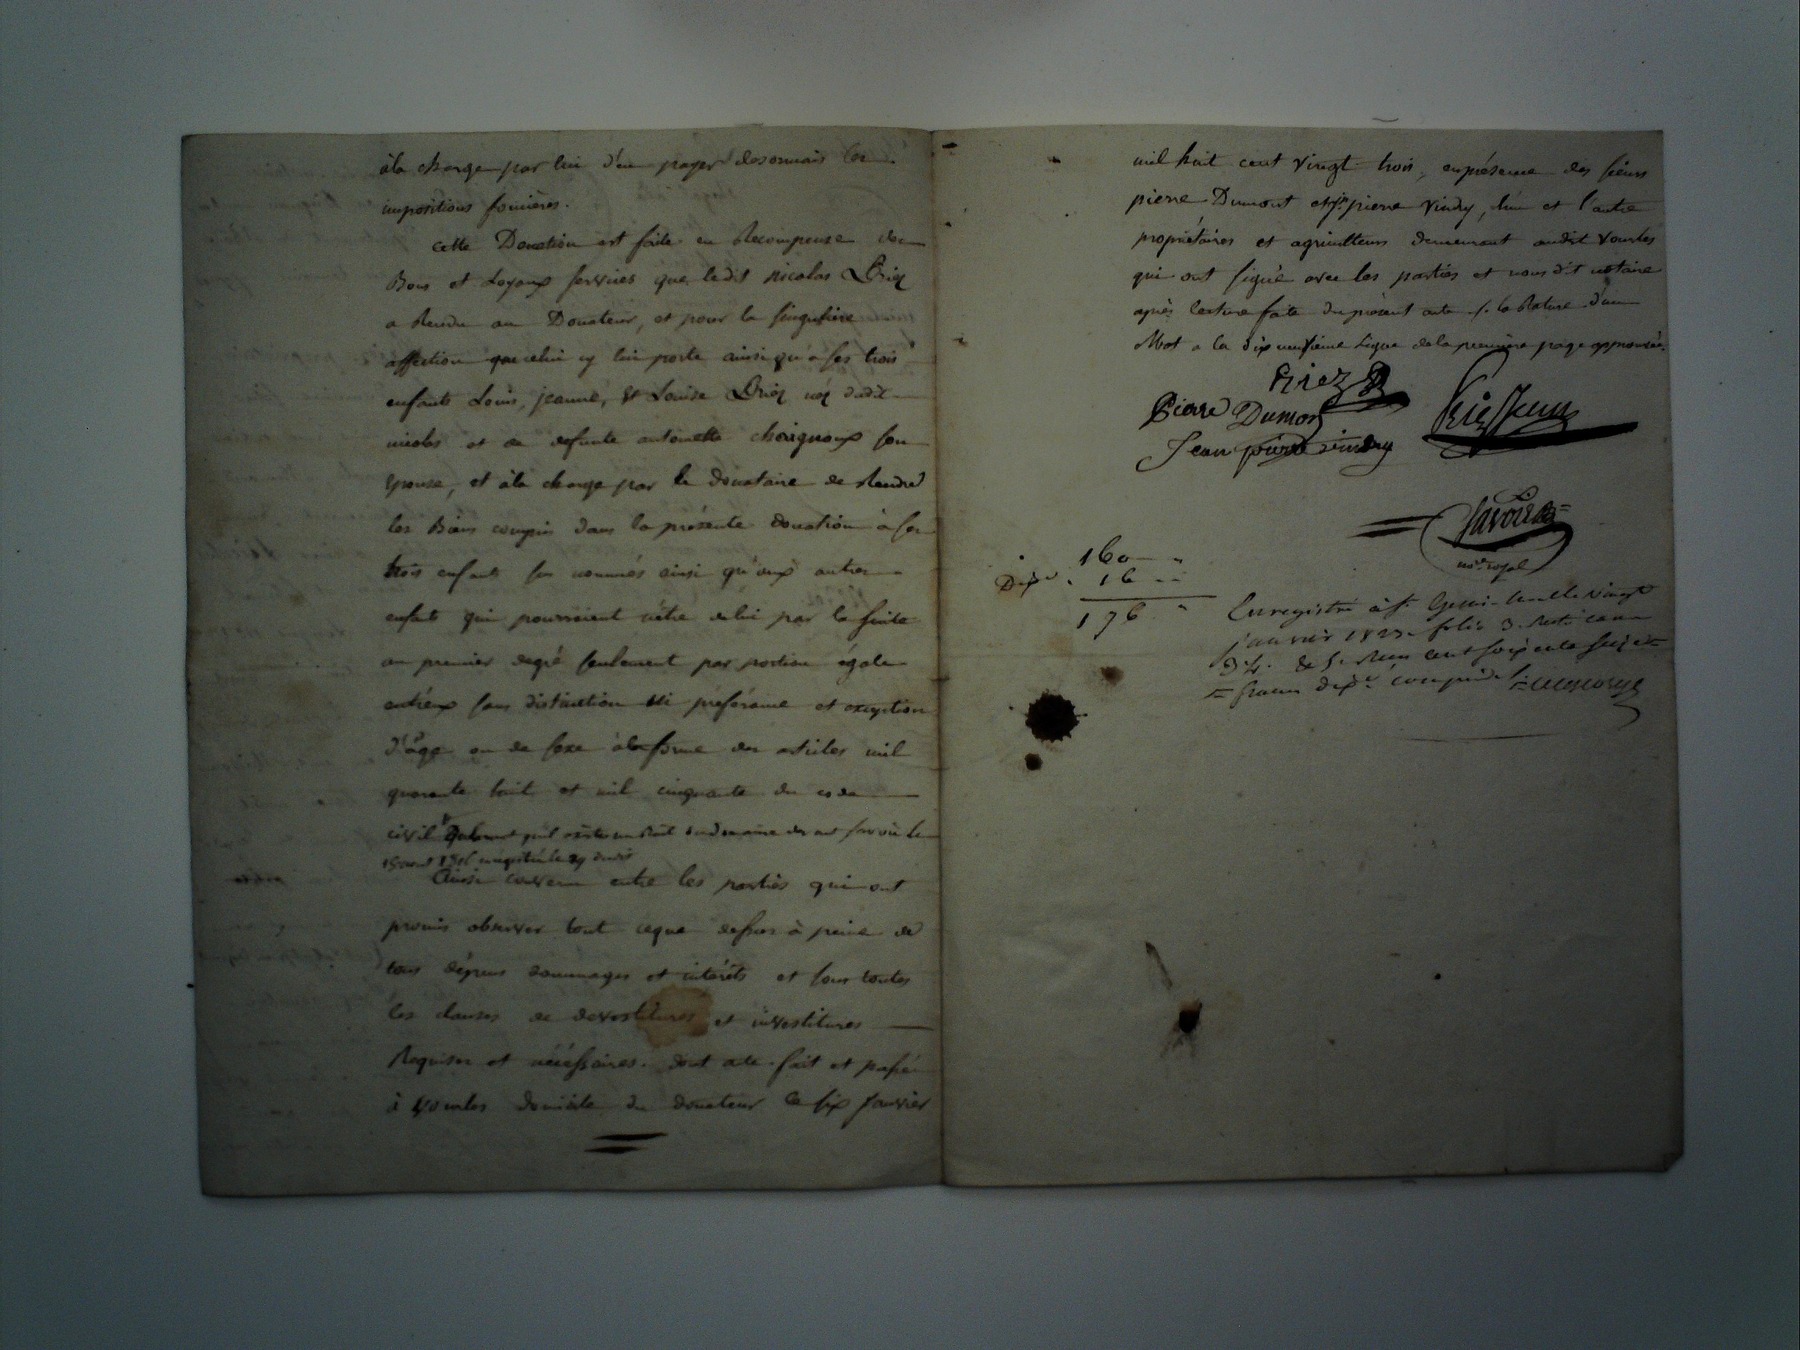 àla charge par lui d'en payer desormais les
impositions foncières.
cette Donation est faite en Recompense des
Bons et Loyaux services que ledit nicolas Briez
a Rendu au Donateur, et pour la singulière
affection que celui cy lui porte ainsi qu'a ses trois
enfants Louis, jeanne, et Louise Briez néz dudit
nicolas et de defunte antoinette son
épouse, et àla charge par le donataire de Rendre
les Biens compris dans la présente donation à ses
trois enfants sus nommés ainsi qu'aux autres
enfants qui pourroient nêtre de lui par la suite
au premier degré seulement par portion égale
entréux sans distinction ni préférance et exception
d'âge ou de sexe àla forme des articles mil
quarante huit et mil cinquante du code
civil
Ainsi convenu entre les parties qui ont
promis observer tout ceque dessus à peine de
tous dépens dommages et intérêts et sous toutes
les clauses de devestitures et investitures
Requises et nécéssaires. dont acte fait et passé
à Vourles domicile du donateur le six janvier
mil huit cent vingt trois, enprésence des sieurs
pierre Dumont et jn pierre Vindry, l'un et l'autre
propriétaires et agriculteurs demeurant audit Vourles
qui ont signé avec les parties et nous dit notaire
après lecture faite du présent acte ./. la Rature d'un
Mot a la dix neuvième Ligne dela première page approuvée.
Pierre Dumont
Jean pierre vindry
Savoie
nore royal
160
Dixe. 16
176
Enregistré à St Genis-le vingt
janvier 1823 folio 3
Reçu cent soixante seize
francs dixe compris